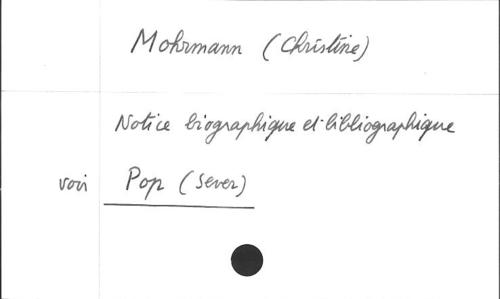 Mohrmann (Christine)
Notice biographique et bibliographique
voir Pop (Sever)